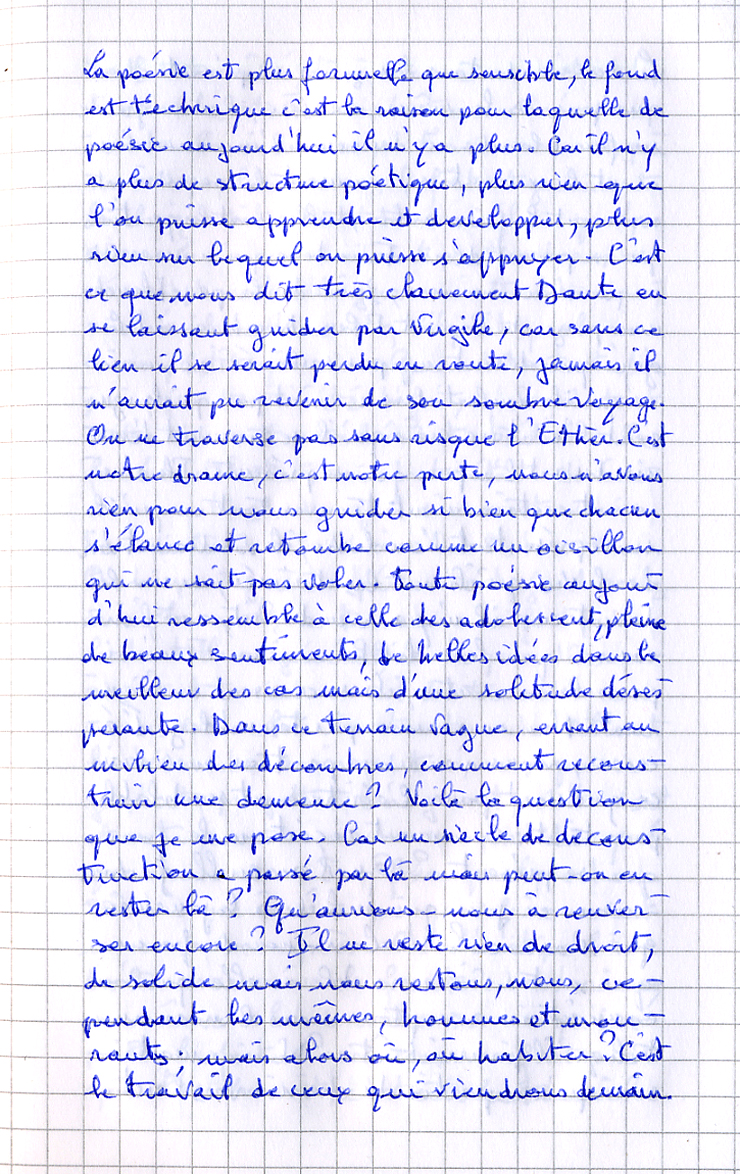 La poésie est plus formelle que sensible, le fond
est technique c'est la raison pour laquelle de
poésie aujourd'hui il n'y a plus. Car il n'y
a plus de structure poétique, plus rien que
l'on puisse apprendre et developper, plus
rien sur lequel on puisse s'appuyer. C'est
ce que nous dit très clairement Dante en
se laissant guider par Virgile, car sans ce
lien il se serait perdu en route, jamais il
n'aurait pu revenir de son sombre voyage.
On ne traverse pas sans risque l'Ether. C'est
notre drame, c'est notre perte, nous n'avons
rien pour nous guider si bien que chacun
s'élance et retombe comme un oisillon
qui ne sait pas voler. Toute poésie aujour
d'hui ressemble à celle des adolescent, pleine
de beaux sentiments, de belles idées dans le
meilleur des cas mais d'une solitude déses
perante. Dans ce terrain vague, errant au
milieu des décombres, comment recons-
truir une demeure? Voilà la question
que je me pose. Car un siècle de decons-
truction a passé par là mais peut-on en
rester là? Qu'aurions-nous à renver-
ser encore? Il ne reste rien de droit,
de solide mais nous restons, nous, ce-
pendant les mêmes, hommes et mou-
rants; mais alors où, où habiter? C'est
le travail de ceux qui viendrons demain.